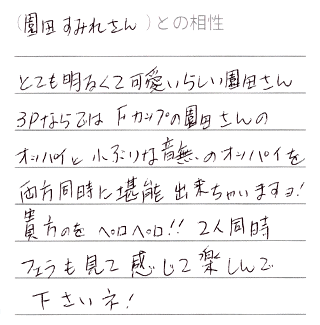 (園田すみれさん)との相性
とても明るくて可愛いらしい園田さん
3PならではFカップの園田さんの
オッパイと小ぶりな音無のオッパイを
両方同時に堪能出来ちゃいますョ!
貴方のをペロペロ!!2人同時
フェラも見て感じて楽しんで
下さいネ!